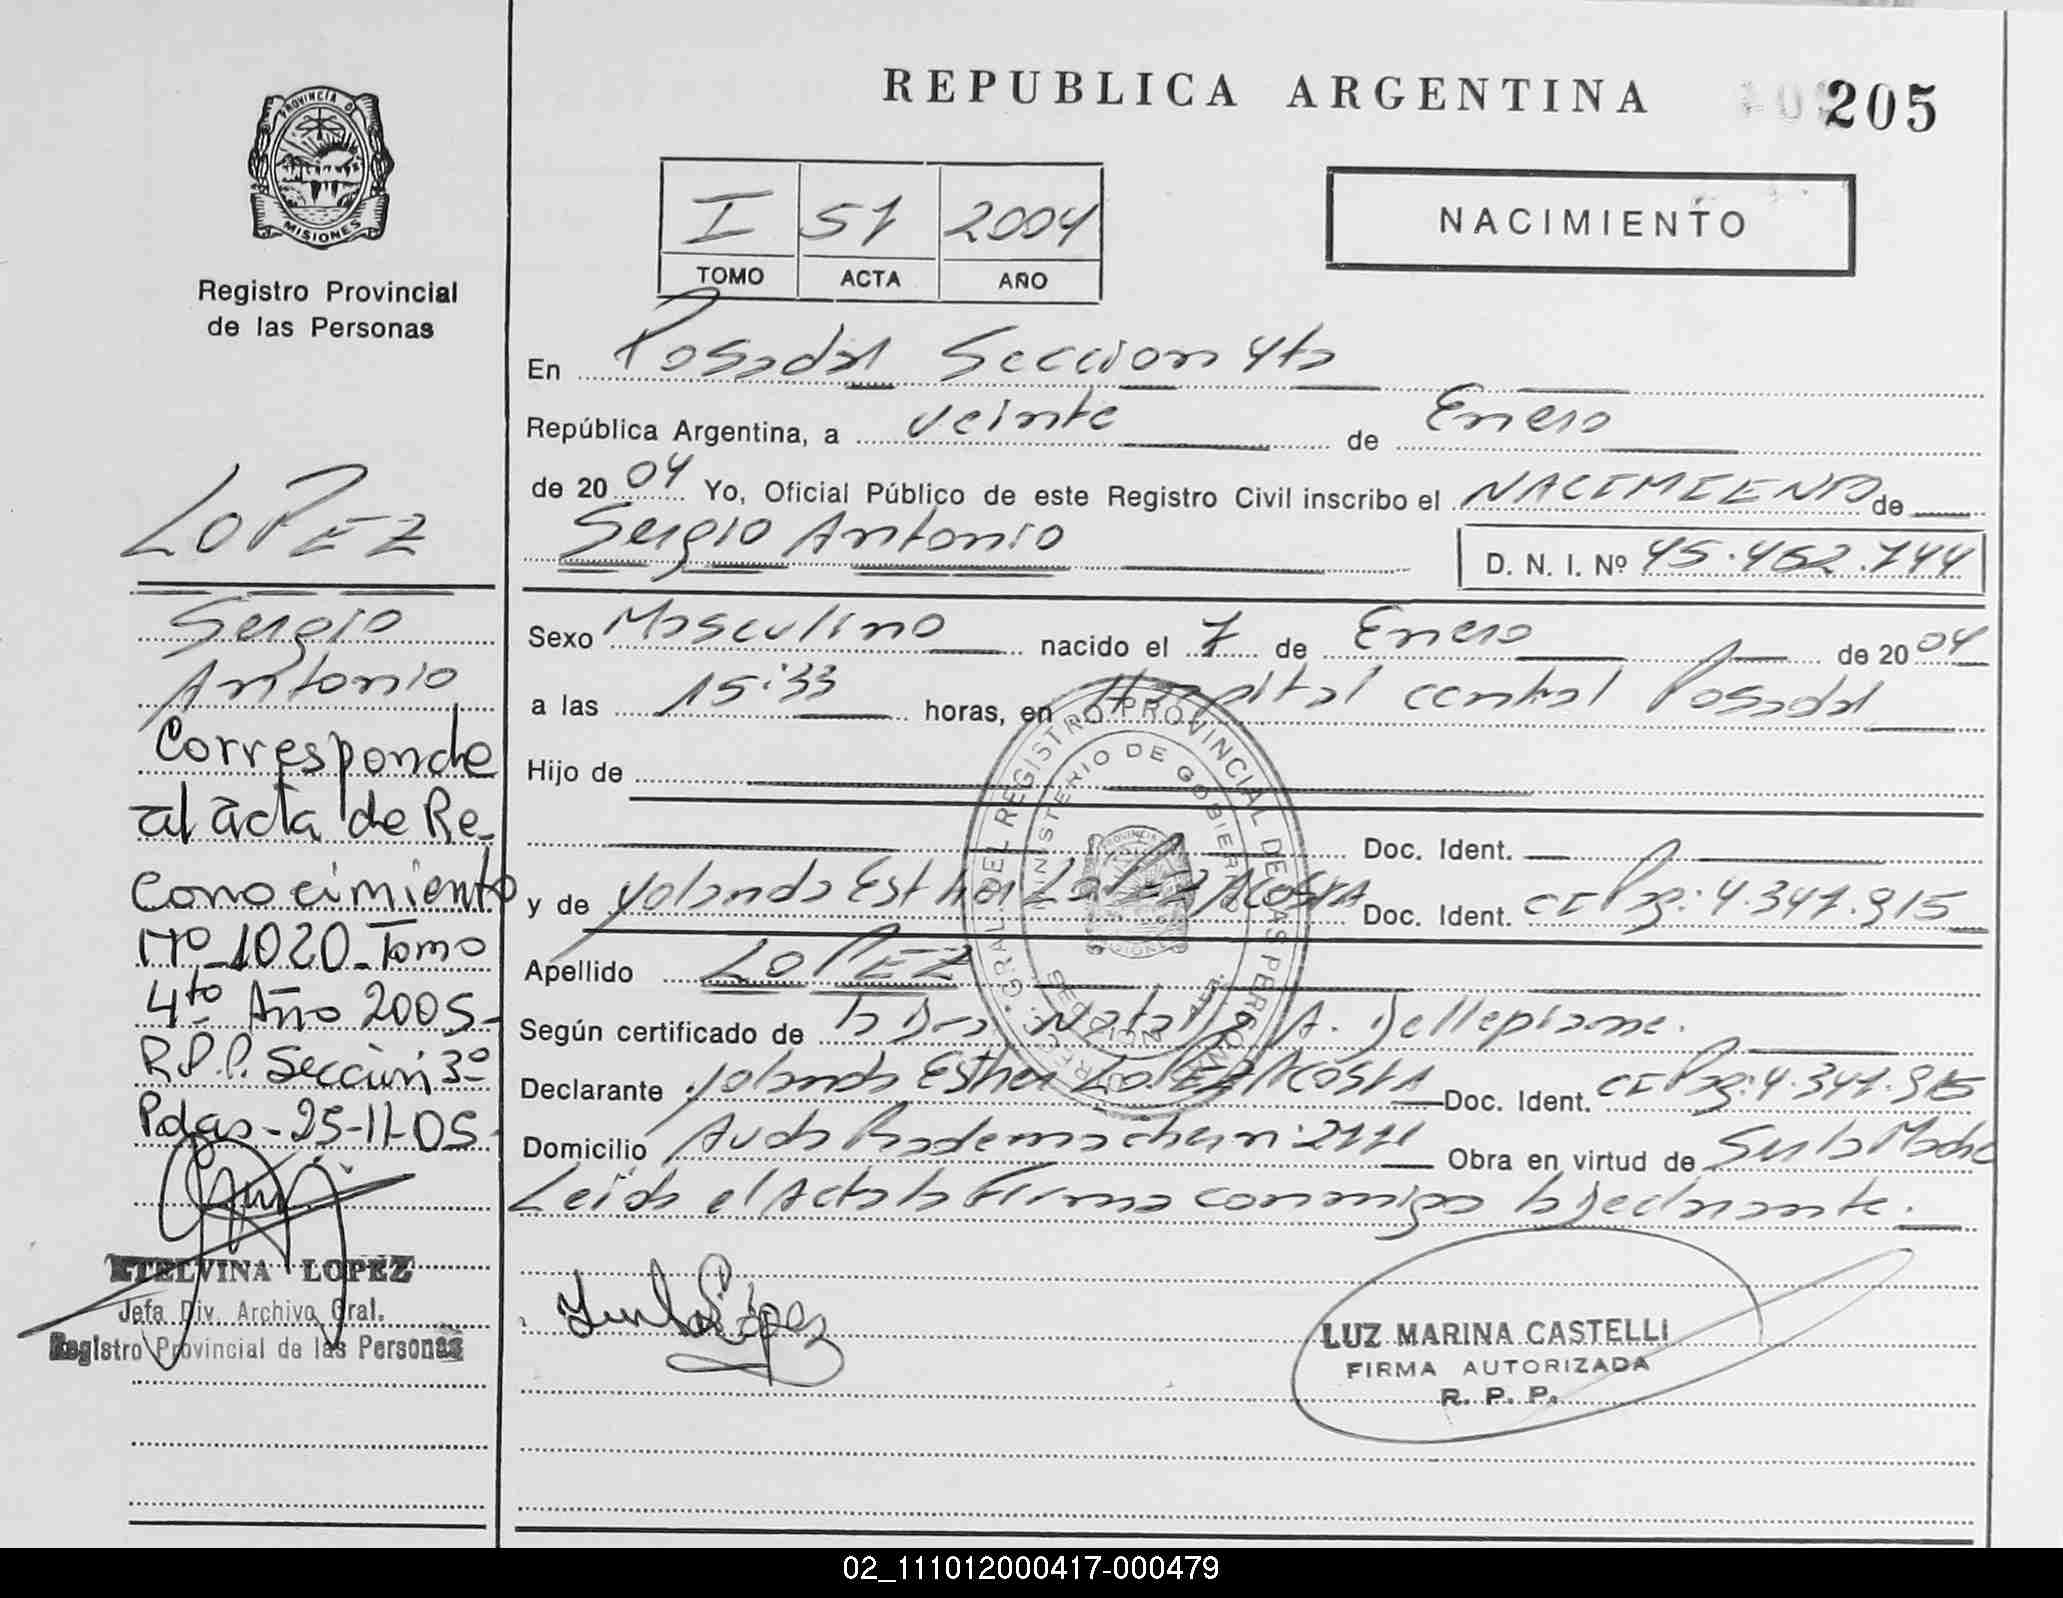 REPUBLICA ARGENTINA 205
PROVINCIA DE
MISIONES
Registro Provincial
de las Personas
I 51 2004
TOMO ACTA AÑO
NACIMIENTO
En Posadas Seccion 4ta
República Argentina, a veinte de Enero
de 2004 Yo, Oficial Público de este Registro Civil inscribo el NACIMIENTO de
Sergio Antonio
D. N. I. Nº 45.462.744
Sexo Masculino nacido el 7 de Enero de 2004
a las 15:33 horas, en Hospital central Posadas
Hijo de
Doc. Ident.
y de Yolanda Esther LoPEZ ACOSTA Doc. Ident. CI Pg: 4.347.915
Apellido LOPEZ
Según certificado de la Dra Natalia A. Dellepiane.
Declarante Yolanda Esther LoPEZ ACOSTA Doc. Ident. CI Pg: 4.347.915
Domicilio Avda Rademacher nº 2171 Obra en virtud de Ser la Madre
Leida el Acta la Firma conmigo la Declarante.
LUZ MARINA CASTELLI
FIRMA AUTORIZADA
R. P. P.
LOPEZ
Sergio
Antonio
Corresponde
al acta de Re-
conocimiento
Nº 1020 - Tomo
4to Año 2005-
R.P.P. Sección 3º
Pdas - 25-11-05.
ETELVINA LOPEZ
Jefa Div. Archivo Gral.
Registro Provincial de las Personas
02_111012000417-000479